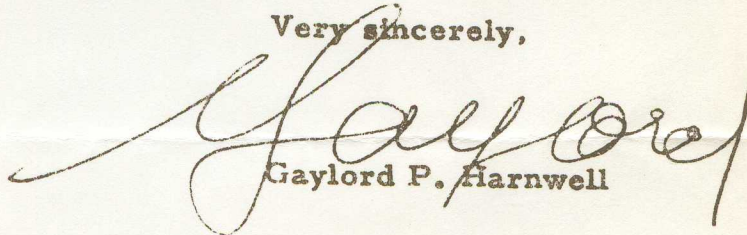 Very sincerely,
Gaylord
Gaylord P. Harnwell